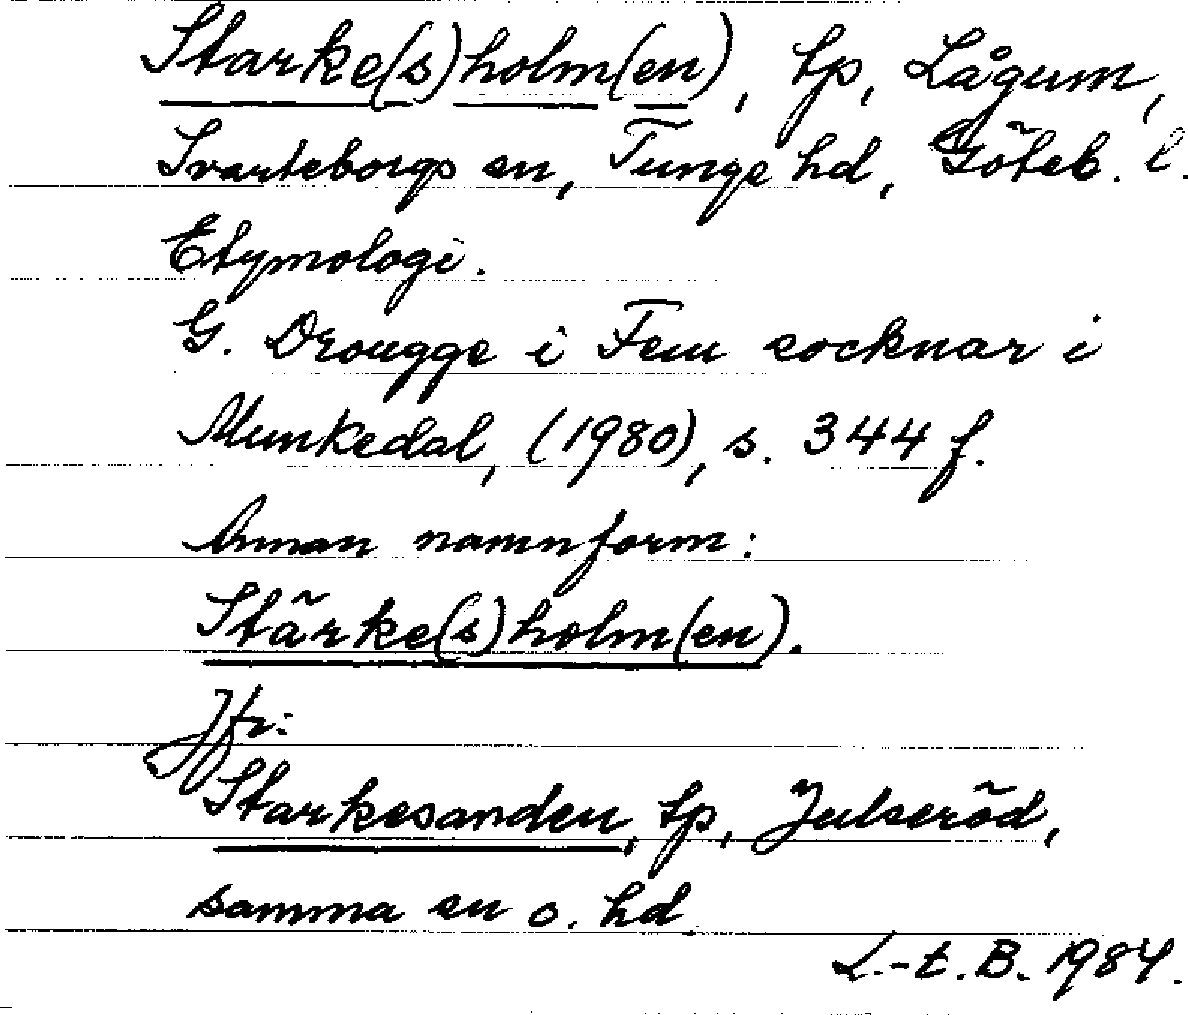 Starke(s)holm(en), tp, Lågum,
Svarteborgs sn, Tunge hd, Göteb. l.
Etymologi.
G. Drougge i Fem socknar i
Munkedal, (1980), s. 344 f.
Annan namnform:
Stärke(s)holm(en).
Jfr:
Starkesanden, tp, Julseröd,
samma sn o. hd
L.-t. B. 1984.